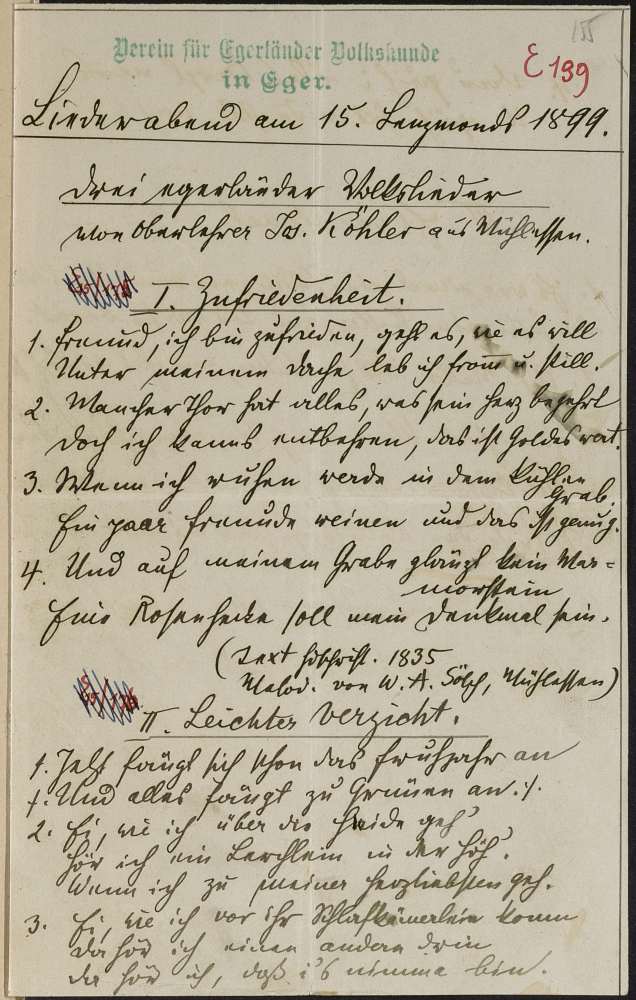 Verein für Egerländer Volkskunde
in Eger.
E 199
Liederabend am 15. Lenzmonds 1899.
Drei egerländer Volkslieder
von Oberlehrer Jos. Köhler aus Mühlessen.
I. Zufriedenheit.
1. Freund, ich bin zufrieden, geht es, wie es will
Unter meinem Dache leb ich fromm u. still.
2. Mancher Thor hat alles, was sein Herz begehrt
Doch ich kanns entbehren, das ist Goldes wert.
3. Wenn ich ruhen werde in dem kühlen
Grab,
Ein paar Freunde weinen und das ist genug.
4. Und auf meinem Grabe glänzt kein Mar=
morstein
Eine Rosenhecke soll mein Denkmal sein.
(Text hdschriftl. 1835
Melod. von W. A. Sölch, Mühlessen)
II. Leichter Verzicht.
1. Jetzt fängt sich schon das Fruhjahr an
/: Und alles fängt zu Grünen an :/.
2. Ei, wie ich über die Heide geh'
Hör ich ein Lerchlein in der Höh'.
Wenn ich zu meiner Herzliebsten geh.
3. Ei, wie ich vor ihr Schlafkämerlein komm
Da hör ich einen andern drin
da hör ich, daß i's nimma bin.